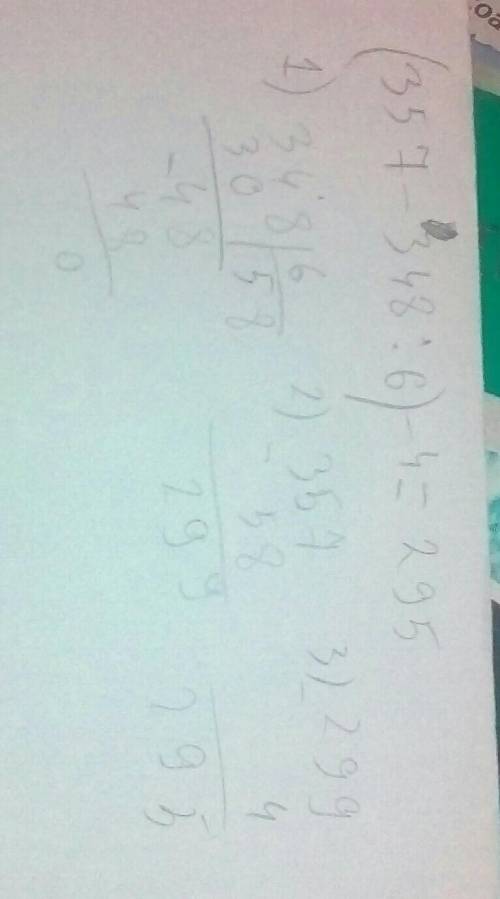 (357-348:6)-4=295
1) 348|6
30 |58
-48
48
0
2) -357
58
299
3) -299
4
295